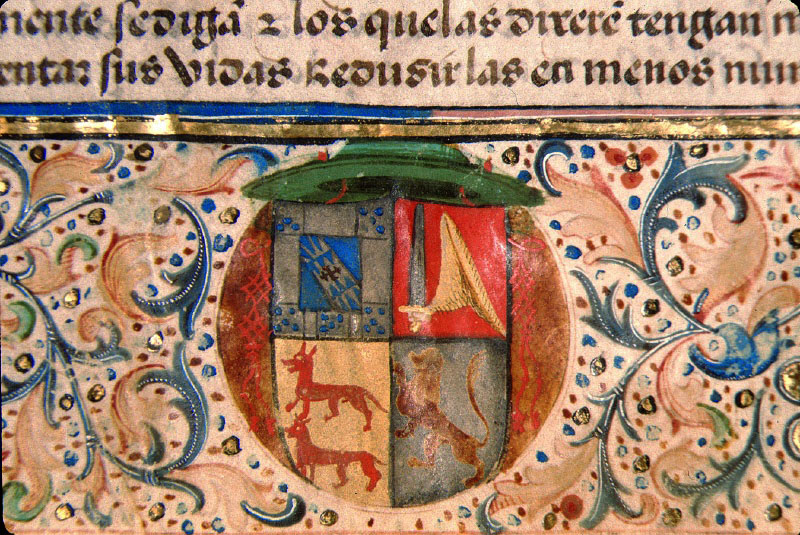 mente se digã ⁊ los que las dixerẽ tengan
entar sus vidas Redusir las en menos num